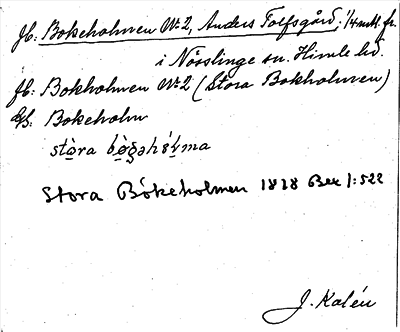 Jb: Bokeholmen No 2, Anders Tolfsgård, 1/4 mtl. fr.
i Nösslinge sn. Himle hd.
Jb: Bokholmen No 2 (Stora Bokholmen)
Gs: Bokeholm
Stora Bökeholmen 1828 Bex 1:522
J. Kalén